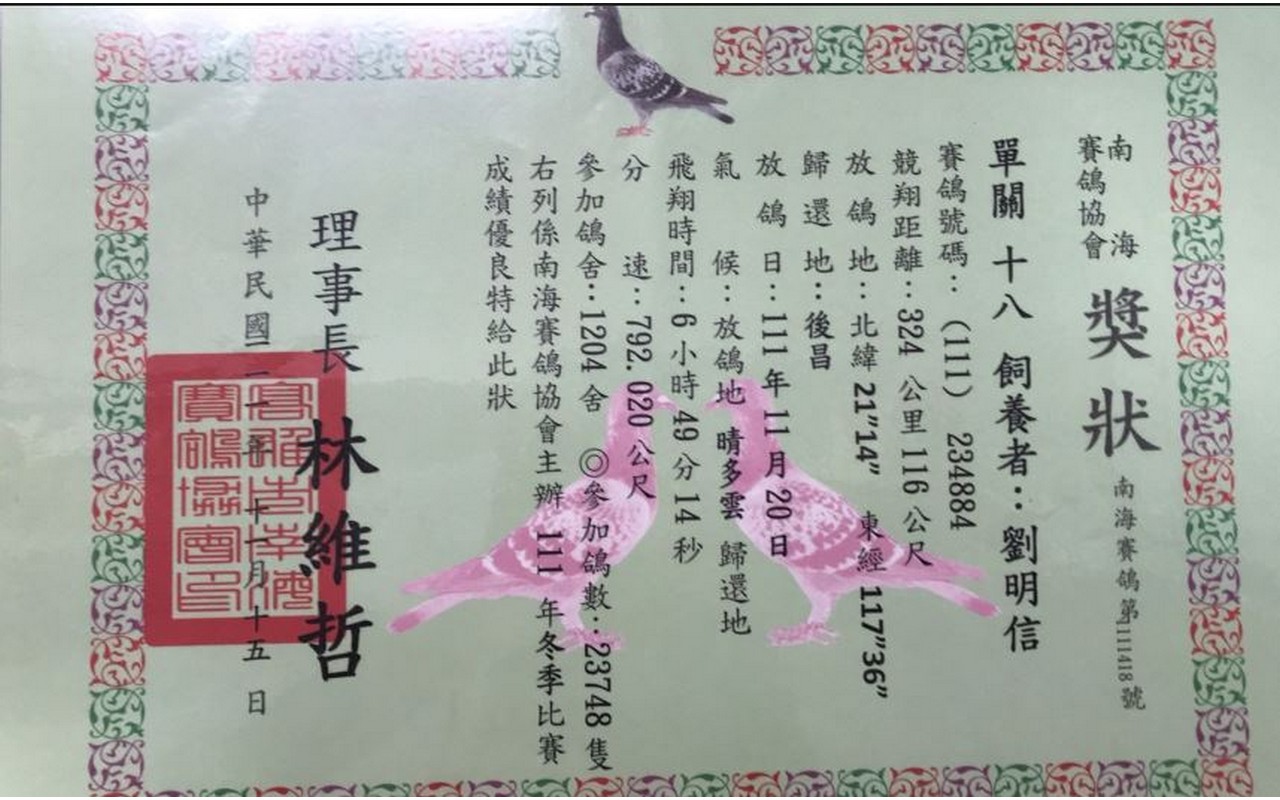 南海賽鴿協會 獎狀 南海賽鴿第1111418號
單關 十八 飼養者：劉明信
賽鴿號碼：(111) 234884
競翔距離：324 公里 116 公尺
放鴿地：北緯 21”14” 東經 117”36”
歸還地：後昌
放鴿日：111 年 11 月 20 日
氣候：放鴿地 晴多雲 歸還地
飛翔時間：6 小時 49 分 14 秒
分速：792.020 公尺
參加鴿舍：1204 舍 ◎參加鴿數：23748 隻
右列係南海賽鴿協會主辦 111 年冬季比賽
成績優良特給此狀
理事長 林維哲
中華民國一一一年 十一月 十五 日